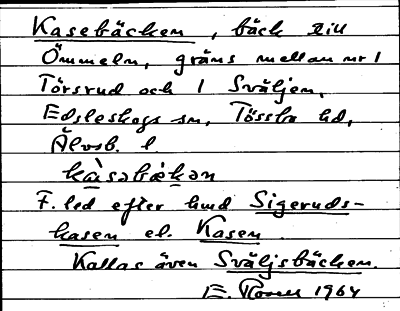 Kasebäcken, bäck till
Ömmeln, gräns mellan nr 1
Törsrud och 1 Sväljen,
Edsleskogs sn, Tössbo hd,
Älvsb. l.
kàsəbækən
F. led efter hmd Sigeruds-
kasen el. Kasen
Kallas även Sväljsbäcken.
E. 1964